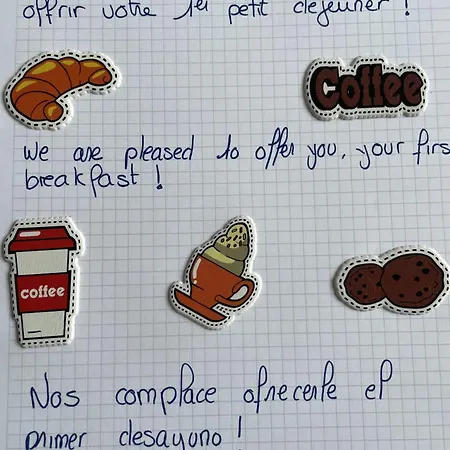 offrir votre 1er petit dejeuner !
Coffee
We are pleased to offer you, your firs
breakfast !
coffee
Nos complace ofrecerle el
primer desayuno !